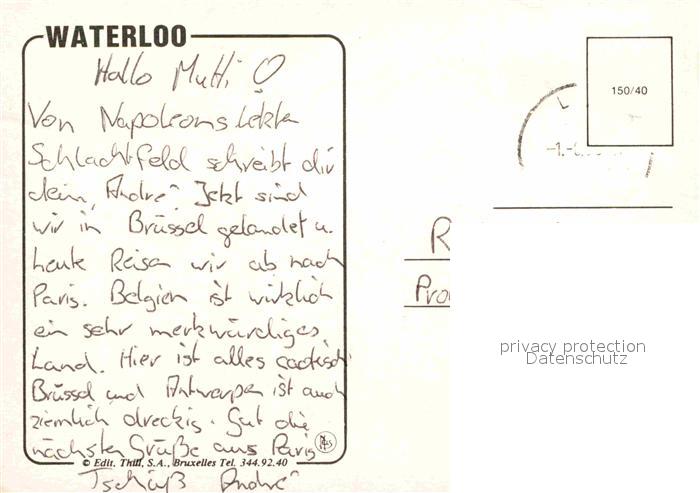 WATERLOO
Hallo Mutti!
Von Napoleons letzten
Schlachtfeld schreibt dir
dein, André. Jetzt sind
wir in Brüssel gelandet u.
heute Reisen wir ab nach
Paris. Belgien ist wirklich
ein sehr merkwürdiges
Land. Hier ist alles caotisch
Brüssel und Antwerpen ist auch
ziemlich dreckig. Gut die
nächsten Grüße aus Paris
© Edit. Thill, S.A., Bruxelles Tel. 344.92.40
Tschüß André
150/40
R
Pro
privacy protection
Datenschutz